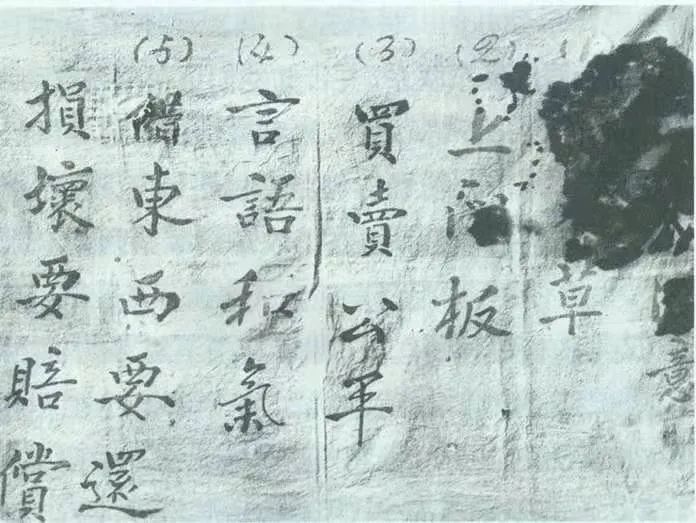 意
(1) 草
(2) 上門板
(3) 買賣公平
(4) 言語和氣
(5) 借東西要還
損壞要賠償